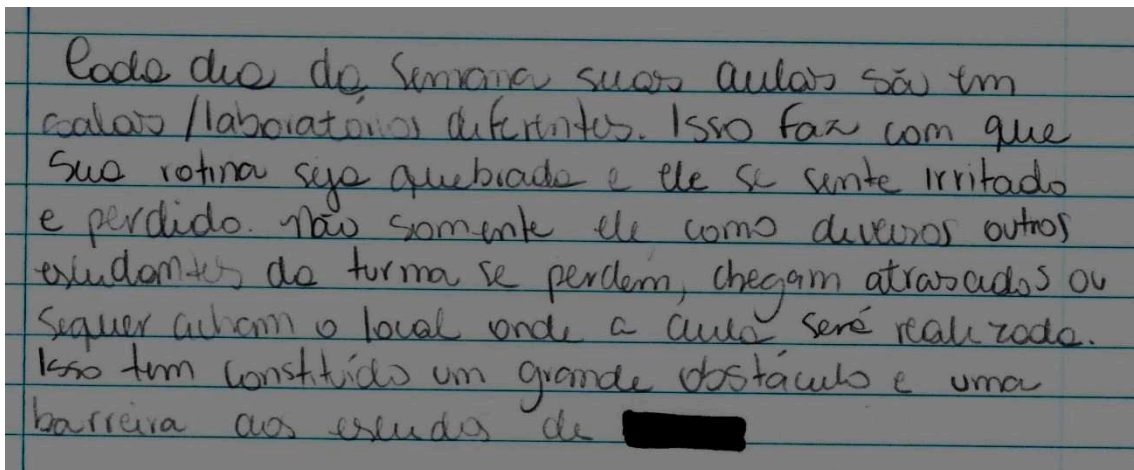 Cada dia da semana suas aulas são em
salas/laboratórios diferentes. Isso faz com que
sua rotina seja quebrada e ele se sente irritado
e perdido. Não somente ele como diversos outros
estudantes da turma se perdem, chegam atrasados ou
sequer acham o local onde a aula será realizada.
Isso tem constituído um grande obstáculo e uma
barreira aos estudos de